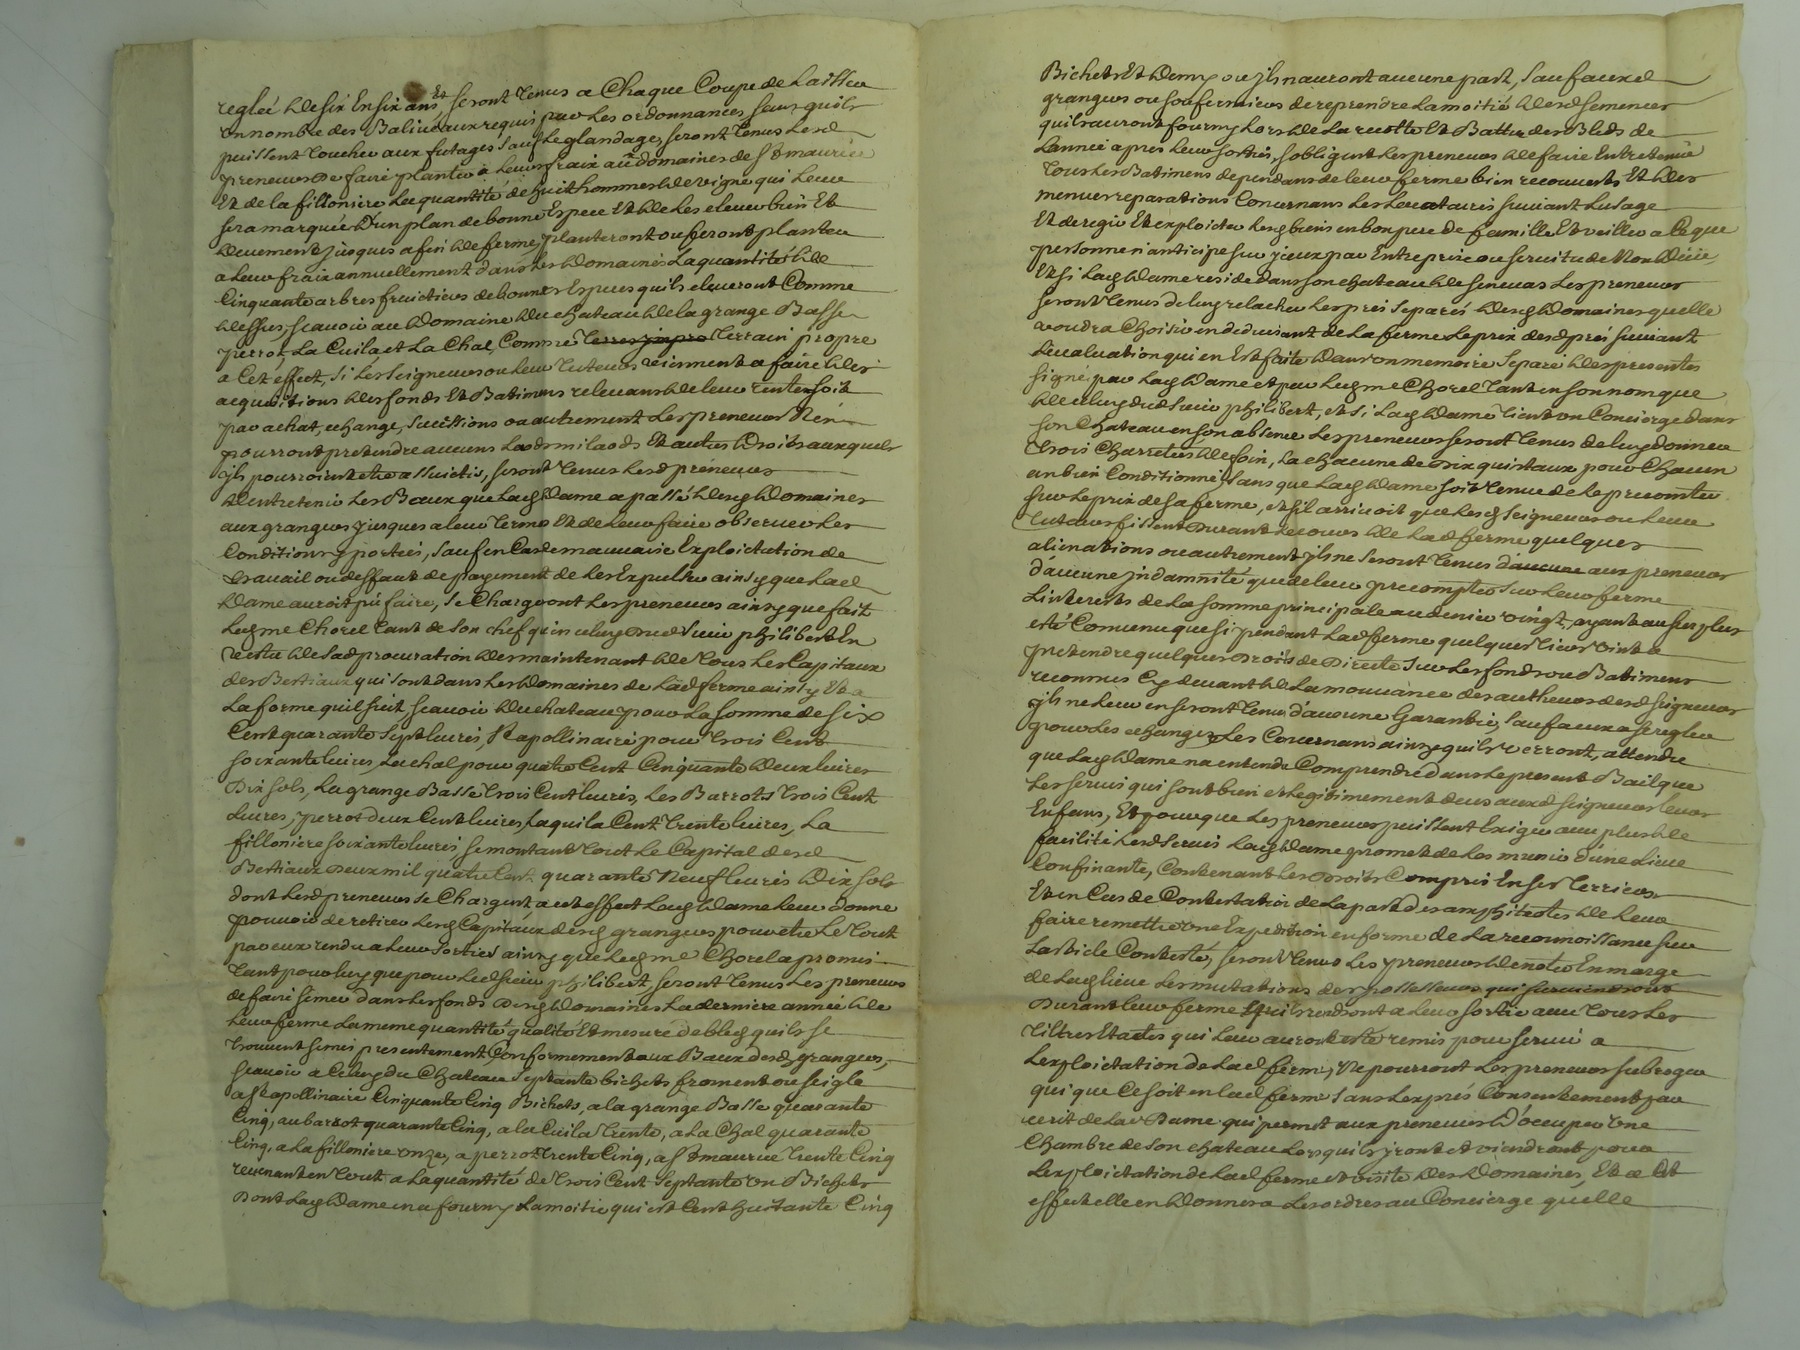 reglée de six en six ans, Et seront tenus a Chaque Coupe de laisser
un nombre des Baliveaux requis par les ordonnances, sans quils
puissent toucher aux futages sauf le glandage, seront tenus lesd
preneurs de faire planter à leurs fraix aud domaines de St maurice
Et de la fillonière la quantité de huit hommes de vigne qui leur
sera marquée d'un plan de bonne Espece Et de les elever bien Et
deuement jusques a fin de ferme, planteront ou feront planter
a leur fraix annuellement dans les domaines la quantité de
Cinquante arbres fruictiers de bonnes Especes quils eleveront Comme
dessus, scauoir au domaine du chateau de la grange Basse
perrot, La Cuila et La Chal, Comme terrain propre
a Cet effect, si les seigneurs ou leur tuteurs viennent a faire des
acquisitions des fonds Et Batimens relevans de leur rente soit
par achat, echange, sucessions ou autrement Les preneurs N'en
pourront pretendre aucuns laods milaods Et autres droits auxquels
jls pourroient etre assuietis, seront tenus lesd preneurs
d'entretenir les Baux que lad dame a passé desd domaines
aux grangers jusques a leur terme Et de leur faire observer les
Conditions y portées, sauf en Cas de mauvaise Exploictation de
travail ou deffaut de payement de les Expulser ainsy que lad
dame auroit pû faire, se Chargeront Les preneurs ainsy que fait
led me Chorel tant de son chef qu'en celuy dud sieur philibert En
vertu de sad procuration des maintenant de tous les Capitaux
des Bestiaux qui sont dans les domaines de lad ferme ainsy Et a
la forme quil suit scauoir du chateau pour la somme de six
Cent quarante sept livres, St apollinaire pour trois Cent
soixante livres, la chal pour quatre Cent Cinquante deux livres
Dix sols, la grange Basse trois Cent livres, les Barrots trois Cent
livres, perrot deux Cent livres, la quila Cent trente livres, La
fillonière soixante livres se montant tout Le Capital desd
Bestiaux deux mil quatre Cent quarante Neuf livres Dix sols
dont lesd preneurs se Chargent a cet effect lad dame leur donne
pouvoir de retirer lesd Capitaux desd grangers pour etre Le tout
par eux rendu a leur sortie ainsy que led me Chorel a promis
tant pour luy que pour led sieur philibert, seront tenus Les preneurs
de faire semer dans les fonds desd domaines la derniere année de
leur ferme la meme quantité qualité Et mesure de bled quils se
trouvent semés presentement, Conformement aux Baux desd grangers,
scauoir a Celuy du Chateau septante bichets froment ou seigle
a St apollinaire Cinquante Cinq Bichets, a la grange Basse quarante
Cinq, au barrot quarante Cinq, a la Cuila trente, a La Chal quarante
Cinq, a La fillonière onze, a perrot trente Cinq, a St maurice trente Cinq
revenant en tout a la quantité de trois Cent septante un Bichets
Dont lad dame en a fourny La moitié qui est Cent huitante Cinq
Bichets Et demy ou jls n'auront aucune part, sauf auxd
grangers ou sousfermiers de reprendre La moitié desd semences
quils auront fourny Lors de La recolte Et Battre des Bleds de
L'année apres leur sortie, sobligent Les preneurs de faire Entretenir
tous les Batimens dependans de leur ferme bien recouverts Et des
menues reparations Concernans les Locataires suivant Lusage
Et de regir Et exploicter lesd biens en bon pere de famille Et veiller a Ce que
personne n'anticipe sur jceux par Entreprise ou servitude Non Düe
Et si Lad dame reside dans son chateau de senevas Les preneurs
seront tenus de luy relacher les prés separés desd domaines quelle
voudra Choisir en deduisant de La ferme Le prix desd prés suivant
L'evaluation qui en Est faite dans un memoire separé des presentes
signé par Lad dame et par Led me Chorel tant en son nom que
de celuy dud sieur philibert, et si Lad dame tient un Concierge dans
son Chateau en son absence Les preneurs seront tenus de luy donner
trois Charretées de foin, la chacune de dix quintaux pour Chacun
an bien Conditionné, sans que Lad dame soit tenue de Le precompter
sur Le prix de sa ferme, et sil arrivoit que lesd seigneurs ou leur
tuteurs fissent durant Le cours de Lad ferme quelques
alienations ou autrement jls ne seront tenus aux preneurs
d'aucune jndamnité que de leur precompter sur leur ferme
L'interests de la somme principale au denier vingt, ayant au surplus
esté Convenu que si pendant Lad ferme quelques tiers vint a
pretendre quelques droits de Directe sur Les fonds ou Batimens
reconnus Cy devant de La mouvance des autheurs desd seigneurs
jls ne leur en seront tenus d'aucune Garantie, sauf a eux a se regler
pour Les echanges Les Concernans ainsy quils verront, attendu
que Lad dame na entendu Comprendre dans Le present Bail que
Les servis qui sont bien et legitimement deus auxd seigneurs leurs
Enfans, Et pour que Les preneurs puissent Exiger avec plus de
facilité Lesd servis Lad dame promet de Les munir d'une Lieve
Confinante, Contenant Les droits Compris En ses terriers
Et en Cas de Contestation de La part des amphiteotes de leur
faire remettre une Expedition en forme de La reconnoissance sur
L'article Contesté, seront tenus Les preneurs de noter En marge
de Lad lieve Les mutations des possesseurs qui surviendront
Durant leur ferme Et quils rendront a leur sortie avec tous Les
tiltres Et actes qui leur auront esté remis pour servir a
L'exploictation de Lad ferme, Ne pourront Les preneurs subroger
qui que Ce soit en Lad ferme sans L'exprés Consentement par
ecrit de La Dame qui permet aux preneurs D'occuper Une
Chambre de son chateau Lors quils jront et viendront pour
L'exploictation de Lad ferme et visite des domaines, Et a Cet
effect elle en donnera Les ordres au Concierge quelle